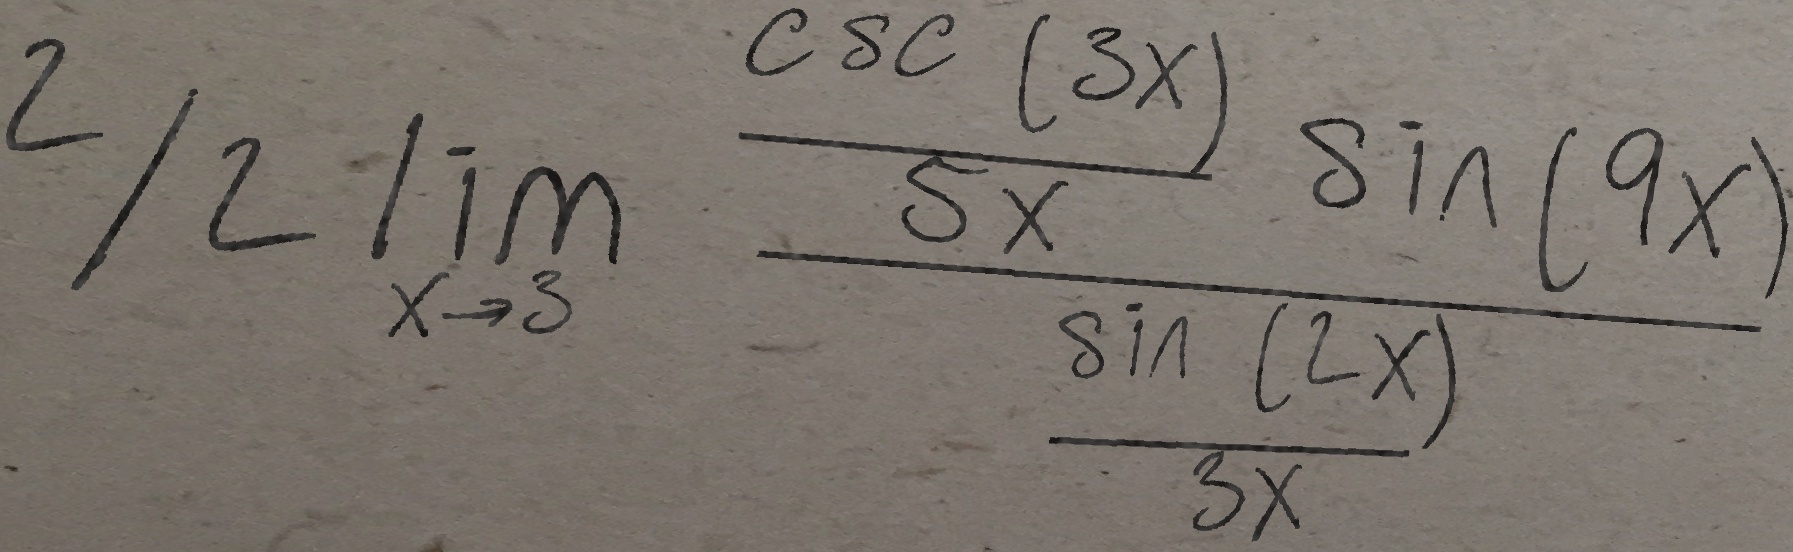 2/2 lim x→3 \frac{\frac{csc (3x)}{5x} sin (9x)}{\frac{sin (2x)}{3x}}